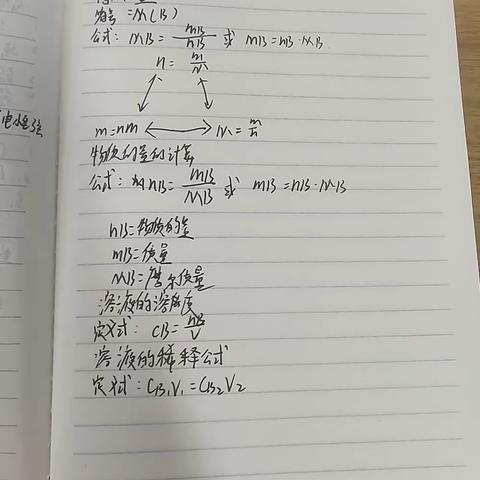 符号=M(B)
公式: MB=mB/nB 或 mB=nB·MB
n=m/M
m=nm ⟷ M=m/n
物质的量的计算
公式: nB=mB/MB 或 mB=nB·MB
nB=物质的量
mB=质量
MB=摩尔质量
溶液的溶度
定义式: CB=nB/V
溶液的稀释公式
定义式: CB₁V₁=CB₂V₂